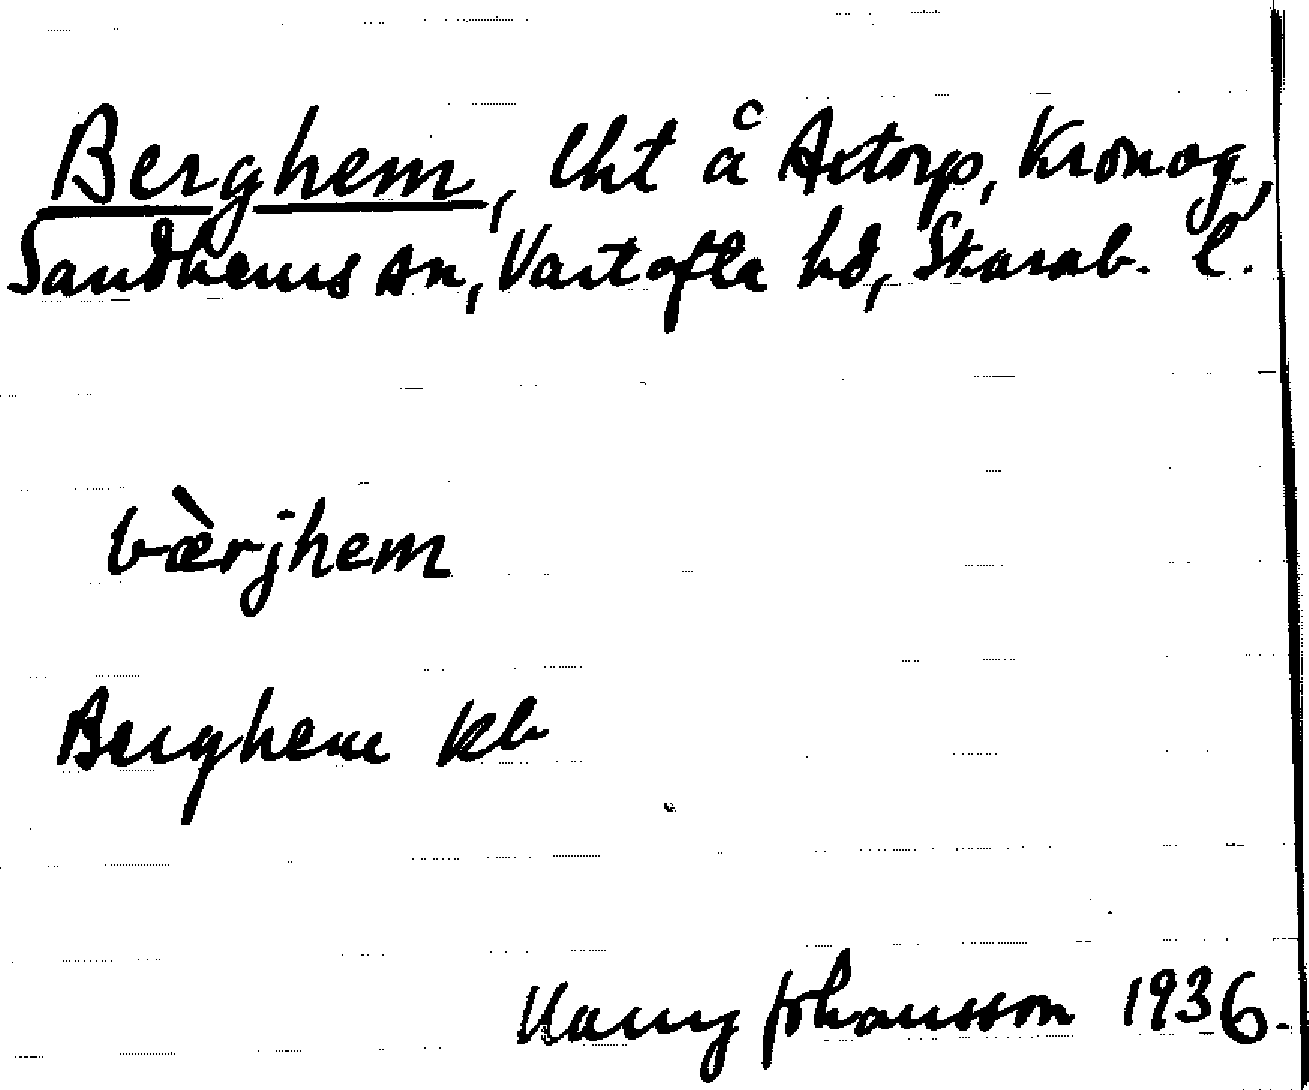 Berghem, lht å Axtorp, Kronog,
Sandhems sn, Vartofta hd, Skarab. l.
bærjhem
Berghem kb
Harry Johansson 1936.